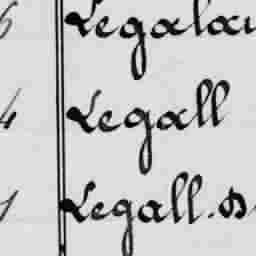 Legala
4 Legall
1 Legall.